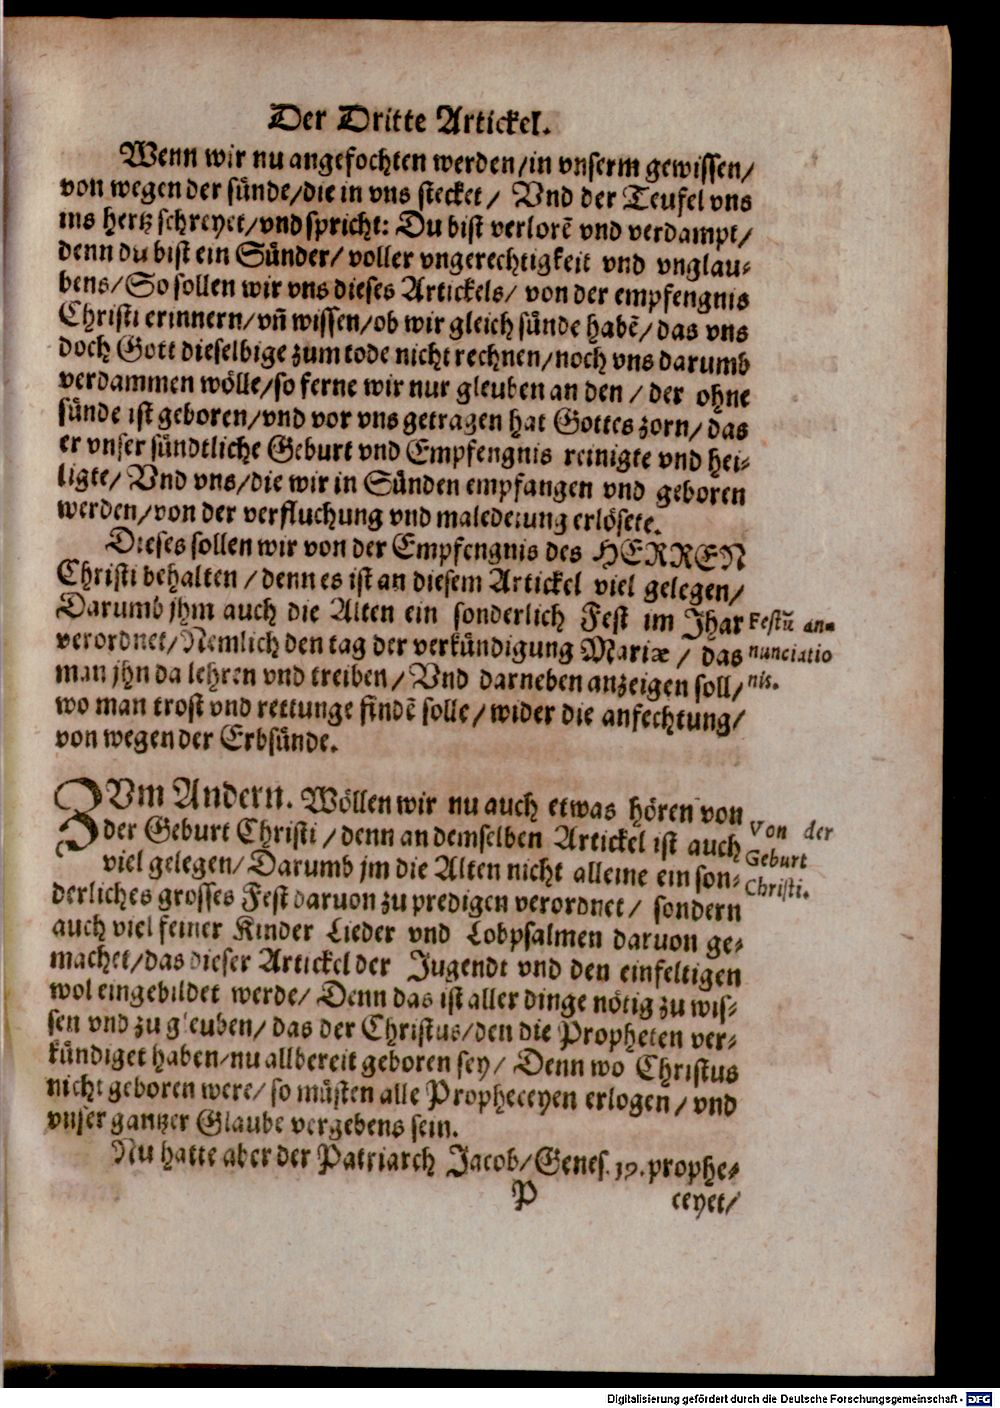 Der Dritte Artickel.
Wenn wir nu angefochten werden/in vnserm gewissen/
von wegen der sünde/die in vns stecket/ Vnd der Teufel vns
ins hertz schreyet/vnd spricht: Du bist verlorẽ vnd verdampt/
denn du bist ein Sünder/ voller vngerechtigkeit vnd vnglau-
bens/ So sollen wir vns dieses Artickels/ von der empfengnis
Christi erinnern/vñ wissen/ob wir gleich sünde habẽ/ das vns
doch Gott dieselbige zum tode nicht rechnen/noch vns darumb
verdammen wölle/so ferne wir nur gleuben an den / der ohne
sünde ist geboren/vnd vor vns getragen hat Gottes zorn/ das
er vnser sündtliche Geburt vnd Empfengnis reinigte vnd hei-
ligte/ Vnd vns/die wir in Sünden empfangen vnd geboren
werden/von der verfluchung vnd maledeiung erlösete.
Dieses sollen wir von der Empfengnis des HERREN
Christi behalten / denn es ist an diesem Artickel viel gelegen/
Darumb jhm auch die Alten ein sonderlich Fest im Jhar
verordnet/Nemlich den tag der verkündigung Mariæ / das
man jhn da lehren vnd treiben/ Vnd darneben anzeigen soll/
wo man trost vnd rettunge findẽ solle/ wider die anfechtung/
von wegen der Erbsünde.
Festũ an-
nunciatio
nis.
ZVm Andern. Wöllen wir nu auch etwas hören von
der Geburt Christi / denn an demselben Artickel ist auch
viel gelegen/ Darumb jm die Alten nicht alleine ein son-
derliches grosses Fest daruon zu predigen verordnet/ sondern
auch viel feiner Kinder Lieder vnd Lobpsalmen daruon ge-
machet/das dieser Artickel der Jugendt vnd den einfeltigen
wol eingebildet werde/ Denn das ist aller dinge nötig zu wis-
sen vnd zu gleuben/ das der Christus/den die Propheten ver-
kündiget haben/nu allbereit geboren sey/ Denn wo Christus
nicht geboren were/ so müsten alle Propheceyen erlogen / vnd
vnser gantzer Glaube vergebens sein.
Von der
Geburt
Christi.
Nu hatte aber der Patriarch Jacob/ Genes. prophe-
P ceyet/
Digitalisierung gefördert durch die Deutsche Forschungsgemeinschaft - DFG